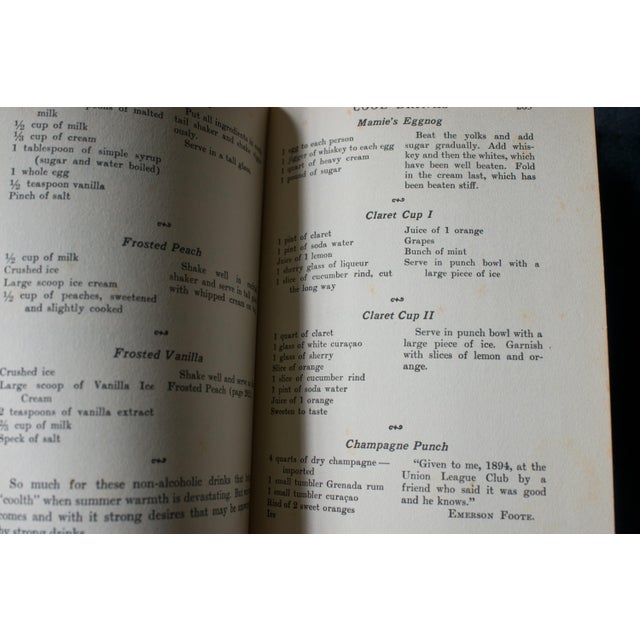 peons of malted
milk
½ cup of milk
⅓ cup of cream
1 tablespoon of simple syrup
(sugar and water boiled)
1 whole egg
½ teaspoon vanilla
Pinch of salt
Put all ingredients in
tail shaker and shake
ously.
Serve in a tall glass.
Frosted Peach
½ cup of milk
Crushed ice
Large scoop ice cream
½ cup of peaches, sweetened
and slightly cooked
Shake well in
shaker and serve in tall
with whipped cream on
Frosted Vanilla
Crushed ice
Large scoop of Vanilla Ice
Cream
2 teaspoons of vanilla extract
⅔ cup of milk
Speck of salt
Shake well and serve
Frosted Peach (page
So much for these non-alcoholic drinks that
"coolth" when summer warmth is devastating. But
comes and with it strong desires that may be
by strong drinks.
COOL DRINKS
Mamie's Eggnog
1 egg to each person
1 jigger of whiskey to each egg
1 quart of heavy cream
1 pound of sugar
Beat the yolks and add
sugar gradually. Add whis-
key and then the whites, which
have been well beaten. Fold
in the cream last, which has
been beaten stiff.
Claret Cup I
1 pint of claret
1 pint of soda water
Juice of 1 lemon
1 sherry glass of liqueur
1 slice of cucumber rind, cut
the long way
Juice of 1 orange
Grapes
Bunch of mint
Serve in punch bowl with a
large piece of ice
Claret Cup II
1 quart of claret
1 glass of white curaçao
1 glass of sherry
Slice of orange
1 slice of cucumber rind
1 pint of soda water
Juice of 1 orange
Sweeten to taste
Serve in punch bowl with a
large piece of ice. Garnish
with slices of lemon and or-
ange.
Champagne Punch
4 quarts of dry champagne—
imported
1 small tumbler Grenada rum
1 small tumbler curaçao
Rind of 2 sweet oranges
Ice
"Given to me, 1894, at the
Union League Club by a
friend who said it was good
and he knows."
EMERSON FOOTE.